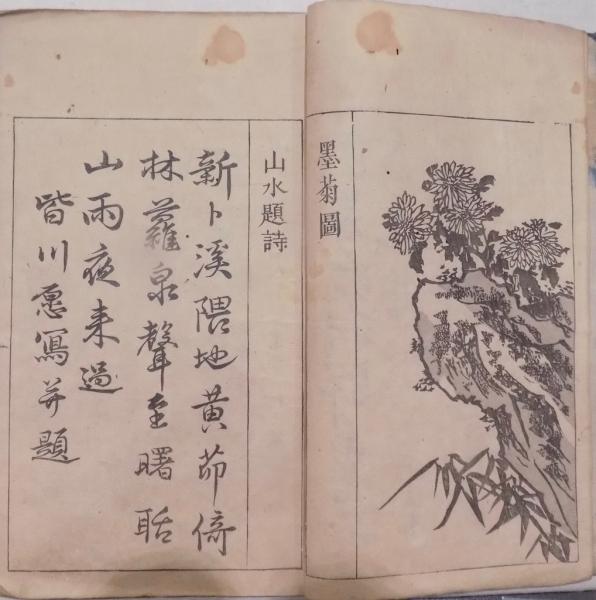 墨菊圖
山水題詩
新卜溪隈地黃茆倚
林蘿泉聲至曙聒
山雨夜来過
皆川愿寫并題